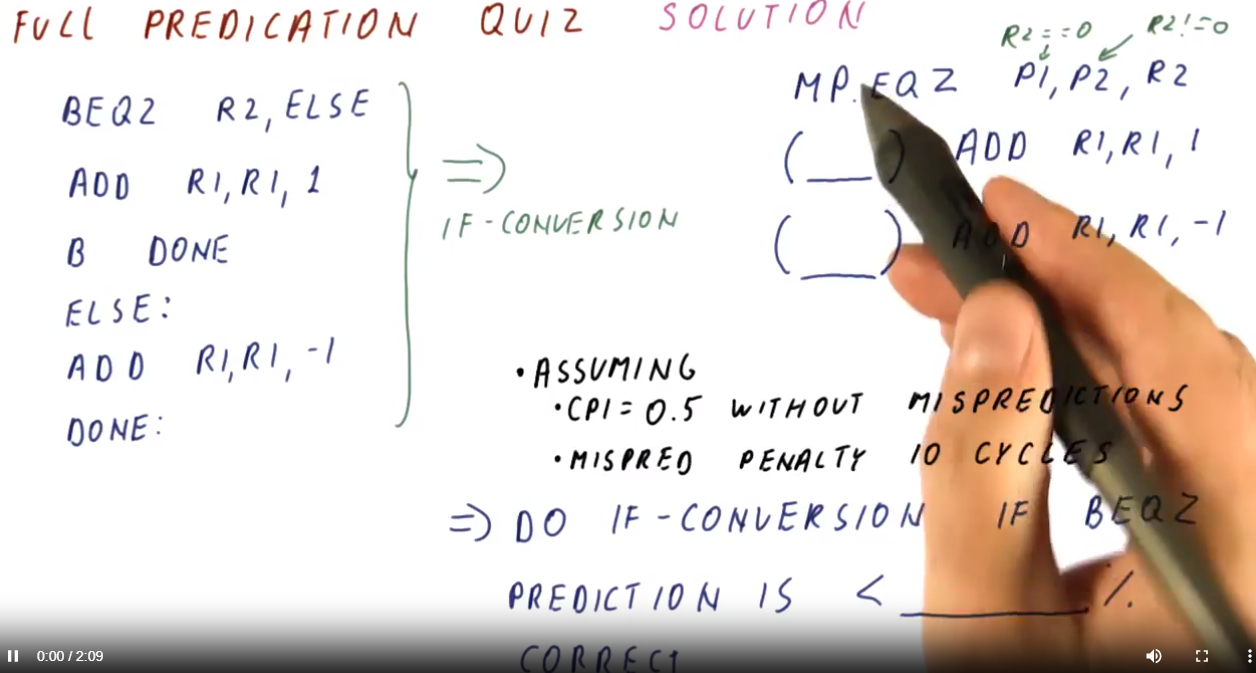 FULL PREDICATION QUIZ SOLUTION
R2==0 R2!=0
BEQZ R2, ELSE
ADD R1, R1, 1
B DONE
ELSE:
ADD R1, R1, -1
DONE:
=>
IF-CONVERSION
MP.EQZ P1, P2, R2
(___) ADD R1, R1, 1
(___) ADD R1, R1, -1
• ASSUMING
• CPI = 0.5 WITHOUT MISPREDICTIONS
• MISPRED PENALTY 10 CYCLES
=> DO IF-CONVERSION IF BEQZ
PREDICTION IS < ______%
CORRECT
0:00 / 2:09